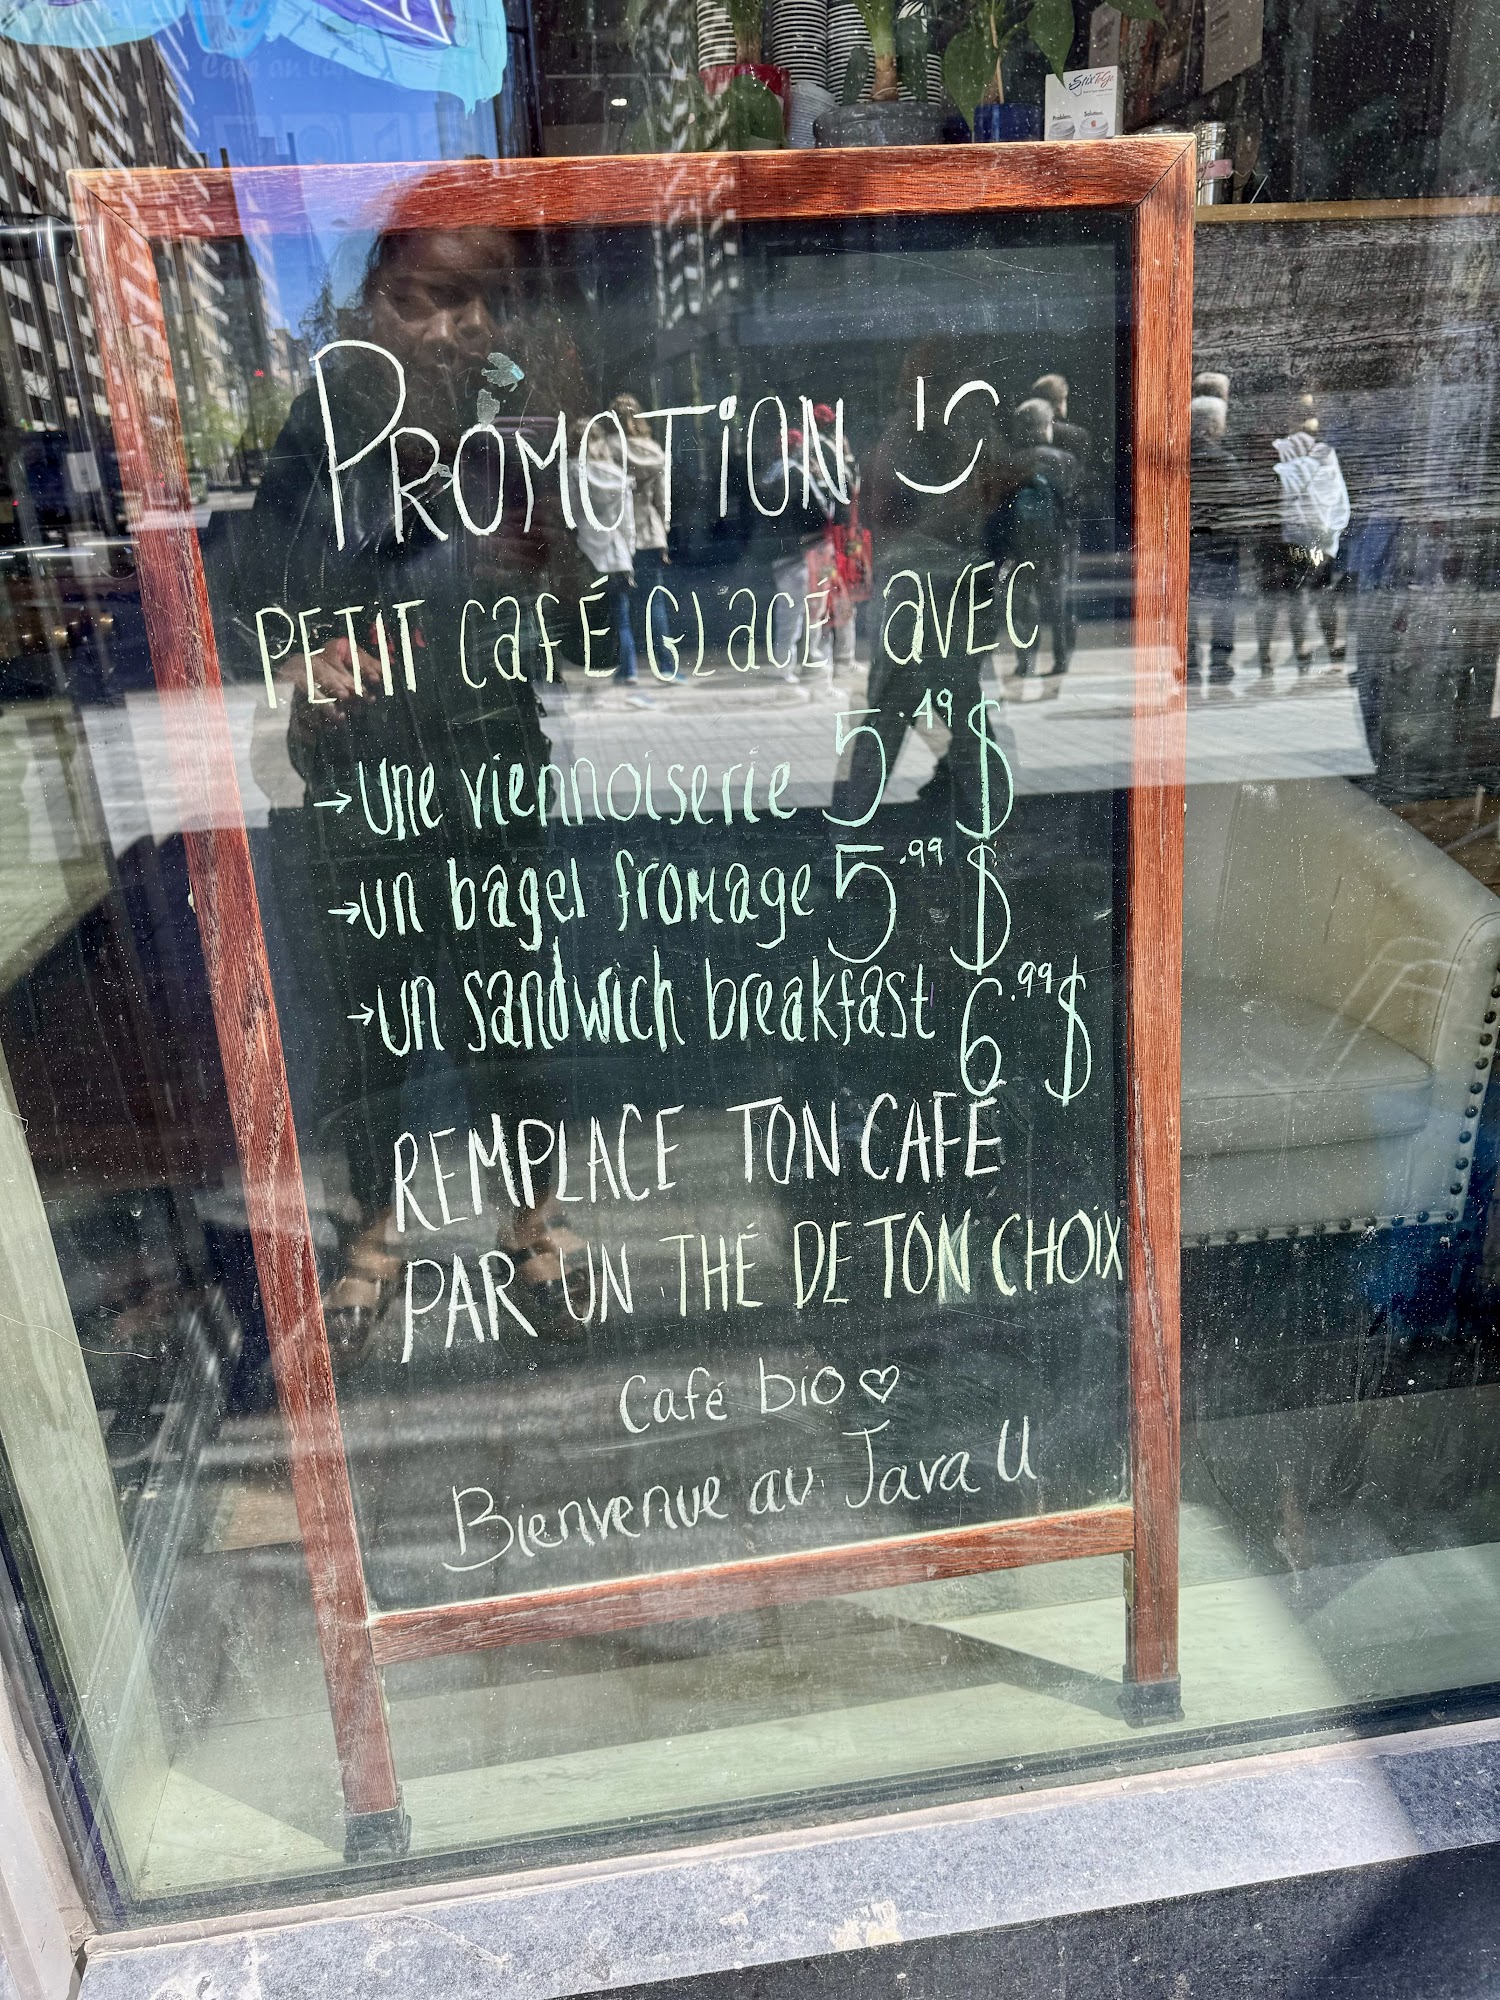 StixToGo
Problem. Solution.
PROMOTiON
PETiT CaFÉ GLaCÉ aVEC
→ une viennoiserie 5.49 $
→ un bagel fromage 5.99 $
→ un sandwich breakfast 6.99 $
REMPLACE TON CAFÉ
PAR UN THÉ DE TON CHOiX
Café bio ♡
Bienvenue au Java U